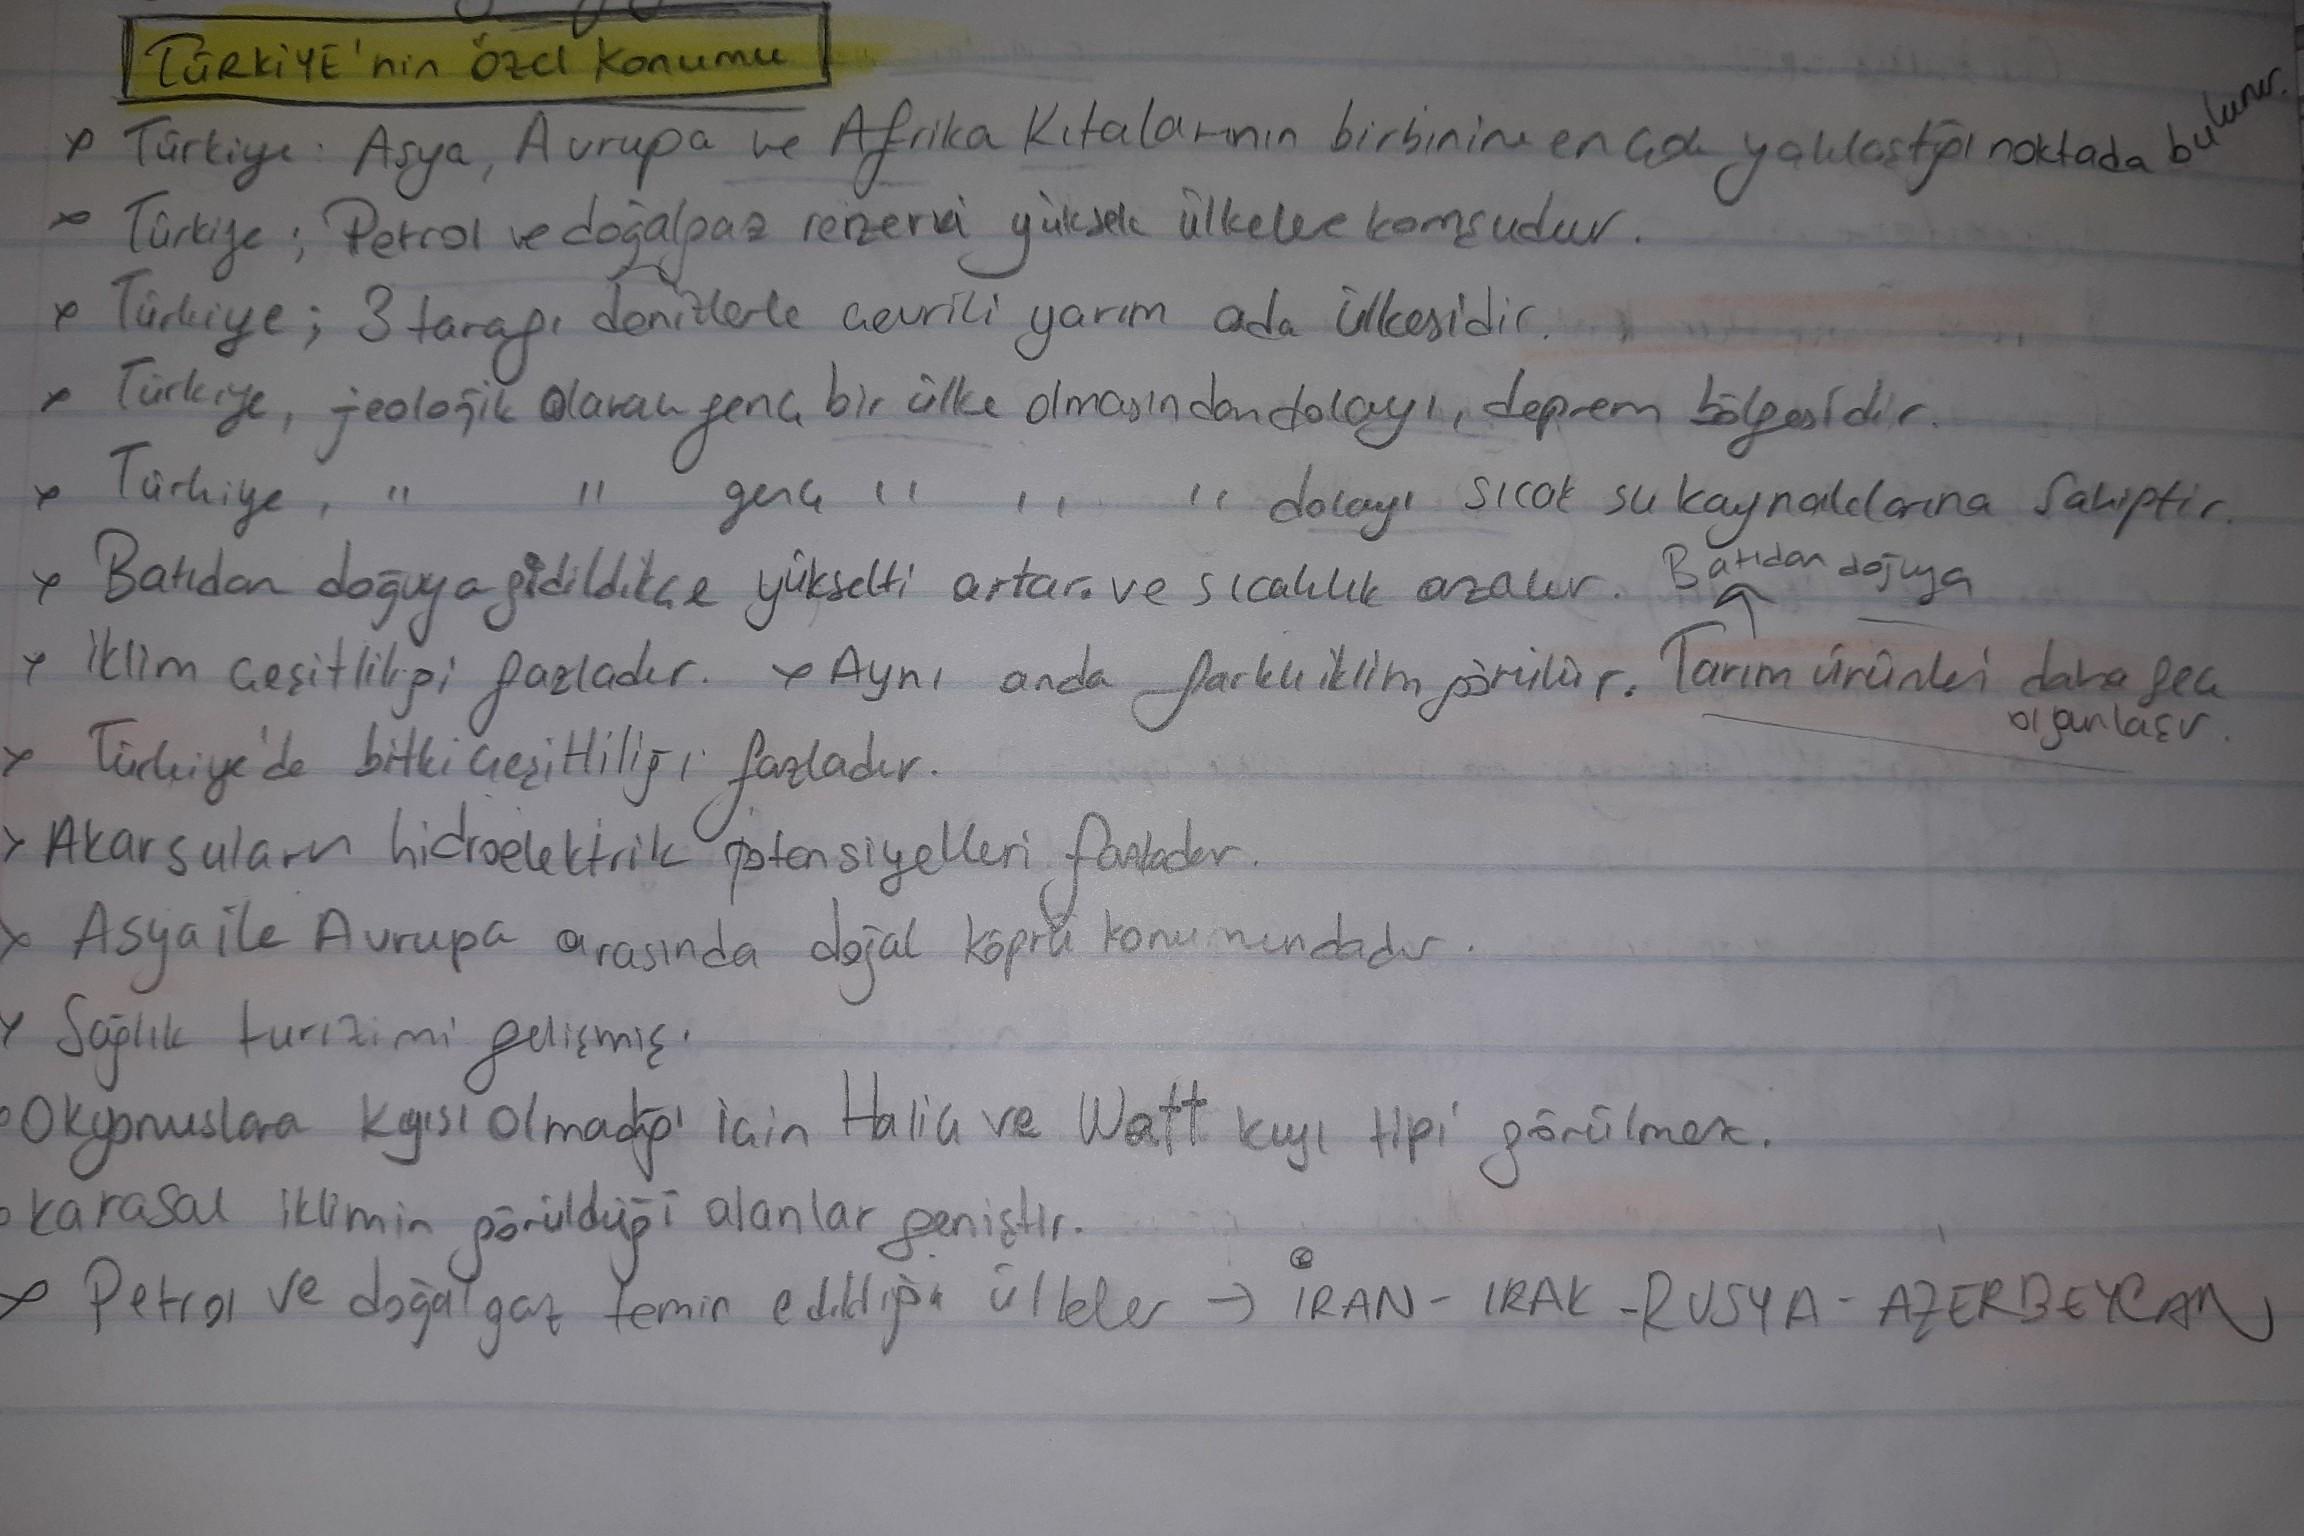 TÜRKİYE'nin özel konumu
Türkiye: Asya, Avrupa ve Afrika Kıtalarının birbirine en çok yaklaştığı noktada bulunur.
Türkiye; Petrol ve doğalgaz rezervi yüksek ülkelere komşudur.
Türkiye; 3 tarafı denizlerle çevrili yarım ada ülkesidir.
Türkiye, jeolojik olarak genç bir ülke olmasından dolayı, deprem bölgesidir.
Türkiye, " " genç " " " dolayı sıcak su kaynaklarına sahiptir.
Batıdan doğuya gidildikçe yükselti artar. ve sıcaklık azalır. Batıdan doğuya
x İklim çeşitliliği fazladır. x Aynı anda farklı iklim görülür. Tarım ürünleri daha geç
olgunlaşır.
Türkiye'de bitki çeşitliliği fazladır.
Akarsuların hidroelektrik potansiyelleri fazladır.
Asya ile Avrupa arasında doğal köprü konumundadır.
Sağlık turizimi gelişmiş.
Okyanuslara kıyısı olmadığı için Haliç ve Watt kıyı tipi görülmez.
karasal iklimin görüldüğü alanlar geniştir.
Petrol ve doğal gaz temin edildiği ülkeler → İRAN - IRAK - RUSYA - AZERBEYCAN